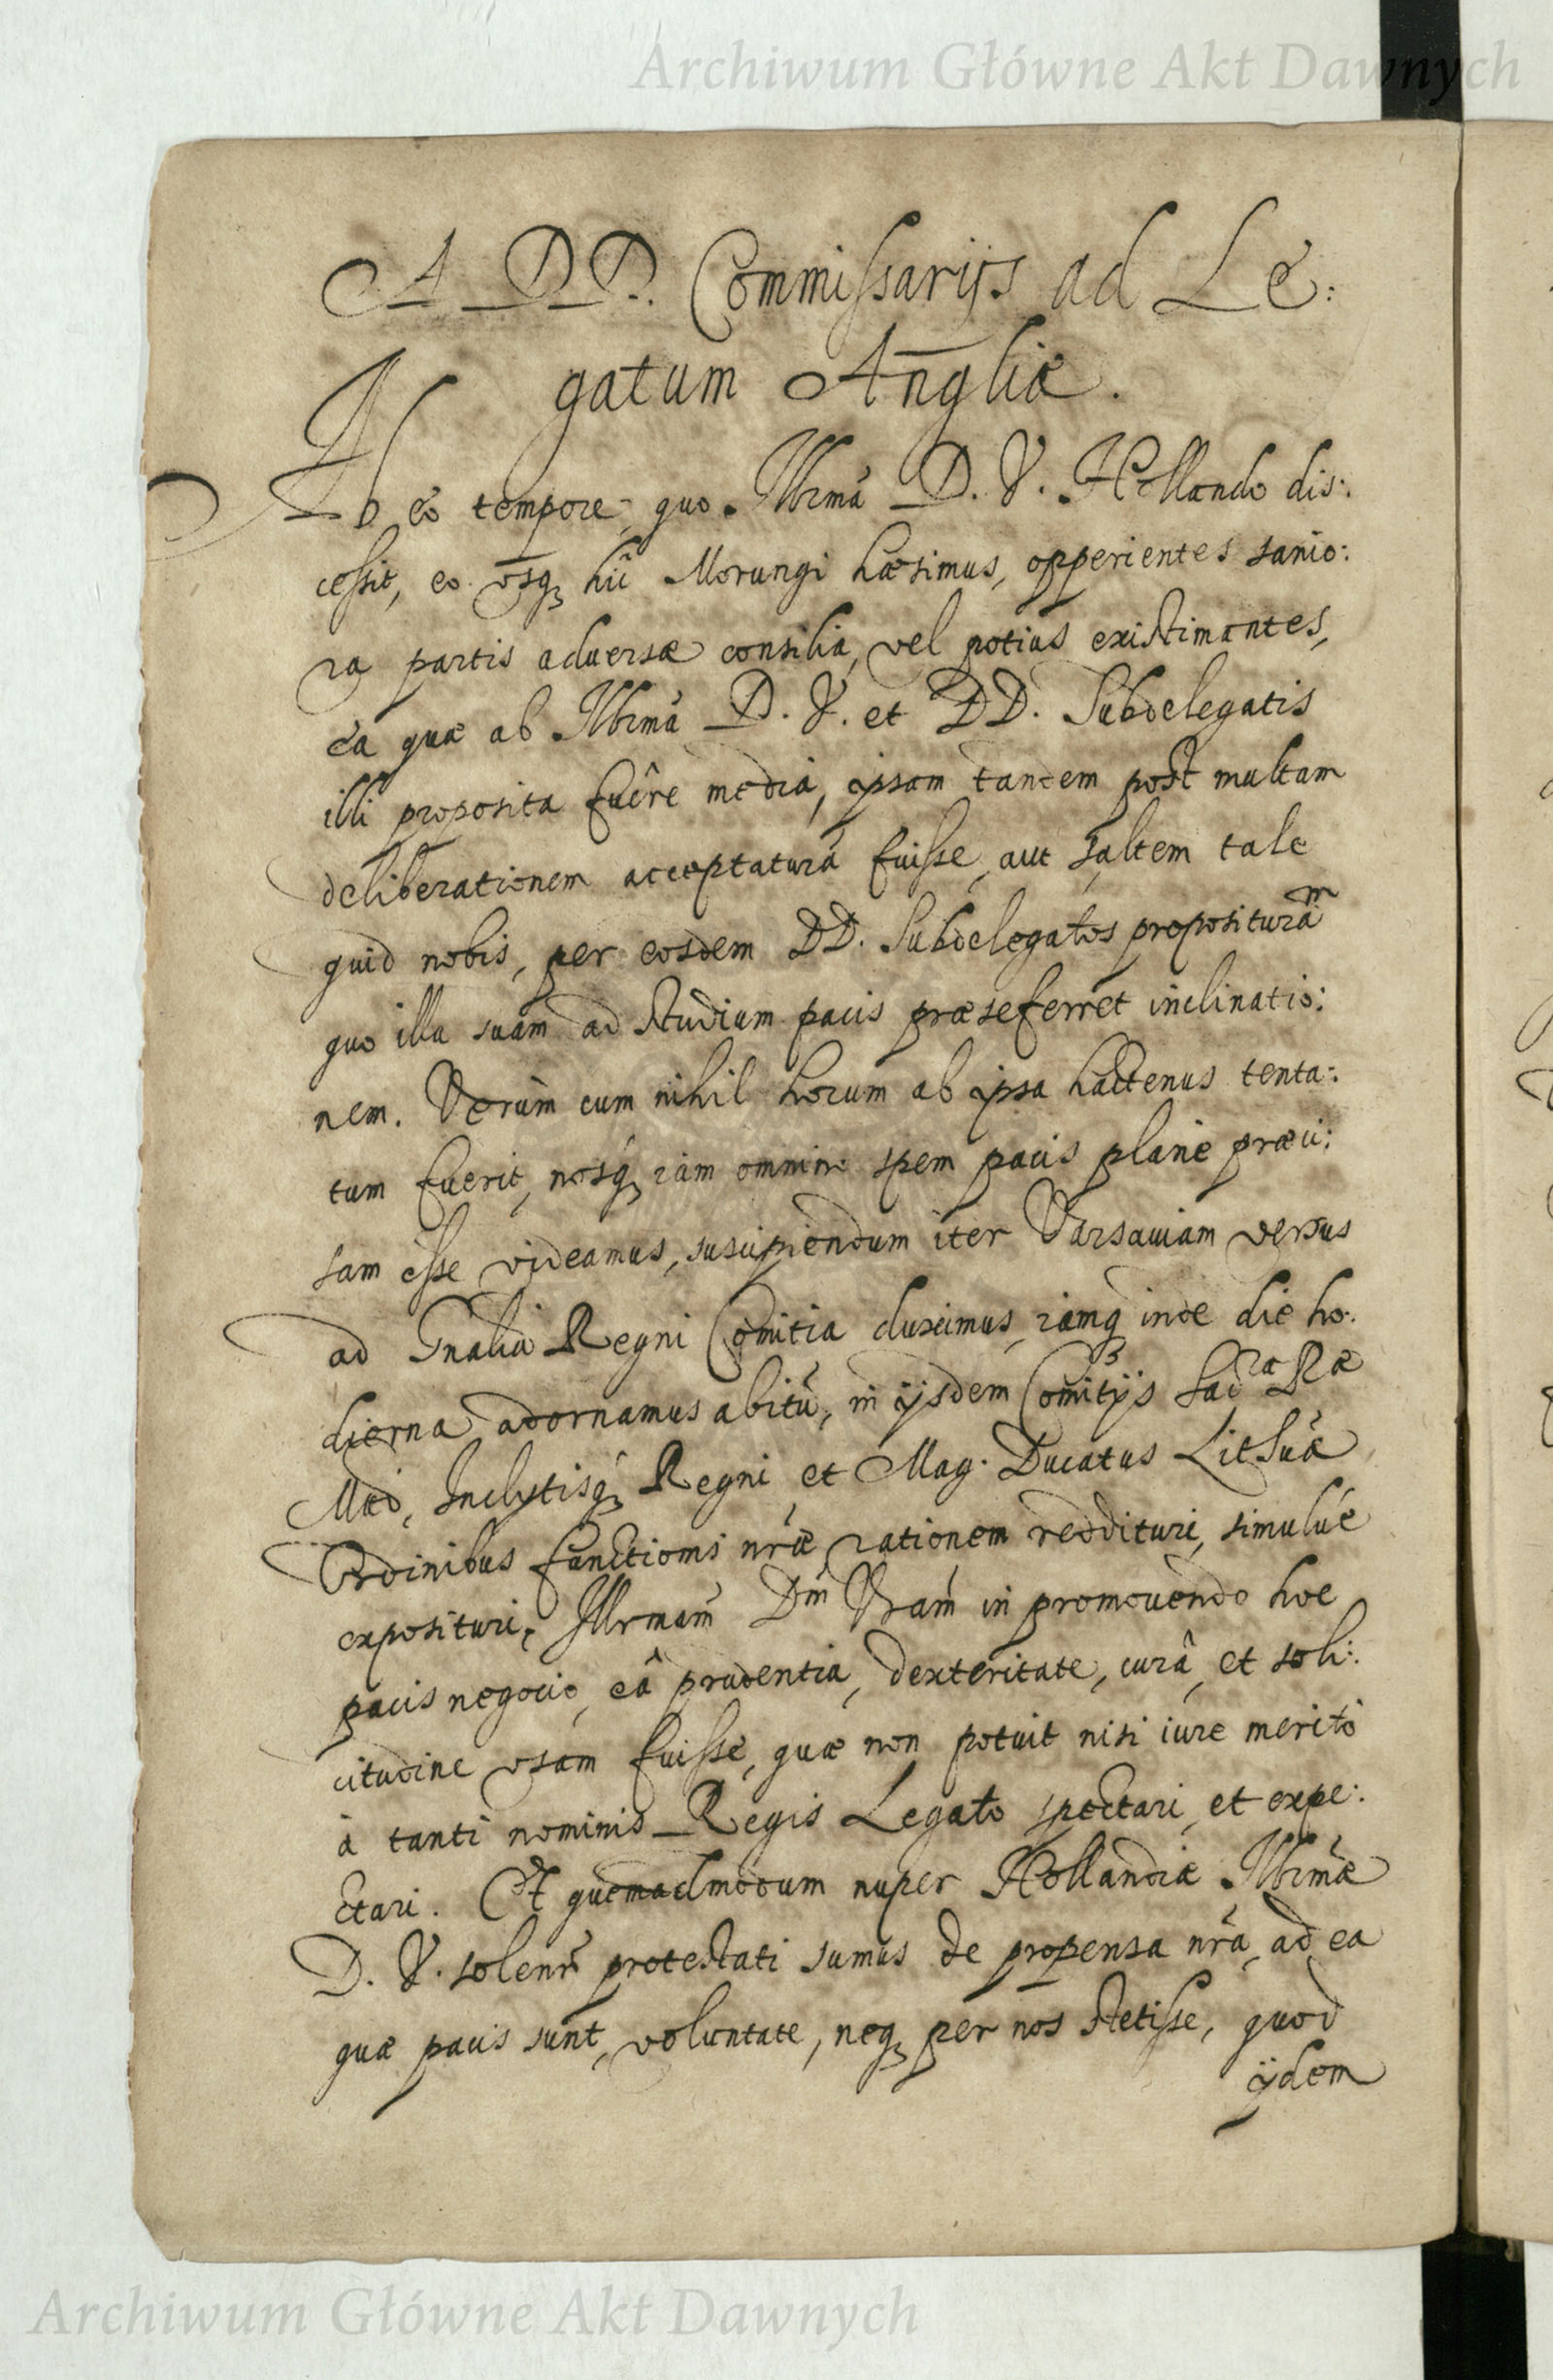 Archiwum Główne Akt Dawnych
A DD. Commissarijs ad Le:
gatum Angliæ.
Ab eo tempore, quo Illrmá D. V. Hollando dis:
cessit, eo usq3 hîi Morungi hæsimus, opperientes sanio:
ra partis aduersæ consilia, vel potius existimantes,
ea quæ ab Illrmá D. V. et DD. Subdelegatis
illi proposita fuêre media, ipsam tandem post multam
deliberationem acceptaturá fuisse, aut saltem tale
quid nobis, per eosdem DD. Subdelegatos propositurám
quo illa suam ad studium pacis præseferret inclinatio:
nem. Verùm cum nihil horum ab ipsa hactenus tenta:
tum fuerit, nosq3 iam omnino spem pacis planè præci:
sam esse videamus, suscipiendum iter Varsauiam versus
ad Gnalia Regni Comitia duximus, iamq3 inde die ho:
dierna adornamus abitũ, in ijsdem Comitijs Sacra Ræ
Mad, Inclytisq3 Regni et Mag. Ducatus Lithuá
Ordinibus functionis nræ rationem reddituri, simulúe
exposituri, Illrmam Dm Vram in promouendo hoc
pacis negocio, eâ prudentia, dexteritate, curâ, et soli:
citudine usam fuisse, quæ non potuit nisi iure meritò
à tanti nominis Regis Legato spectari, et expe:
ctari. Et quemadmodum nuper Hollandiæ Illrmæ
D. V. solenr protestati sumus de propensa nrá, ad ea
quæ pacis sunt, voluntate, neq3 per nos stetisse, quod
ijdem
Archiwum Główne Akt Dawnych